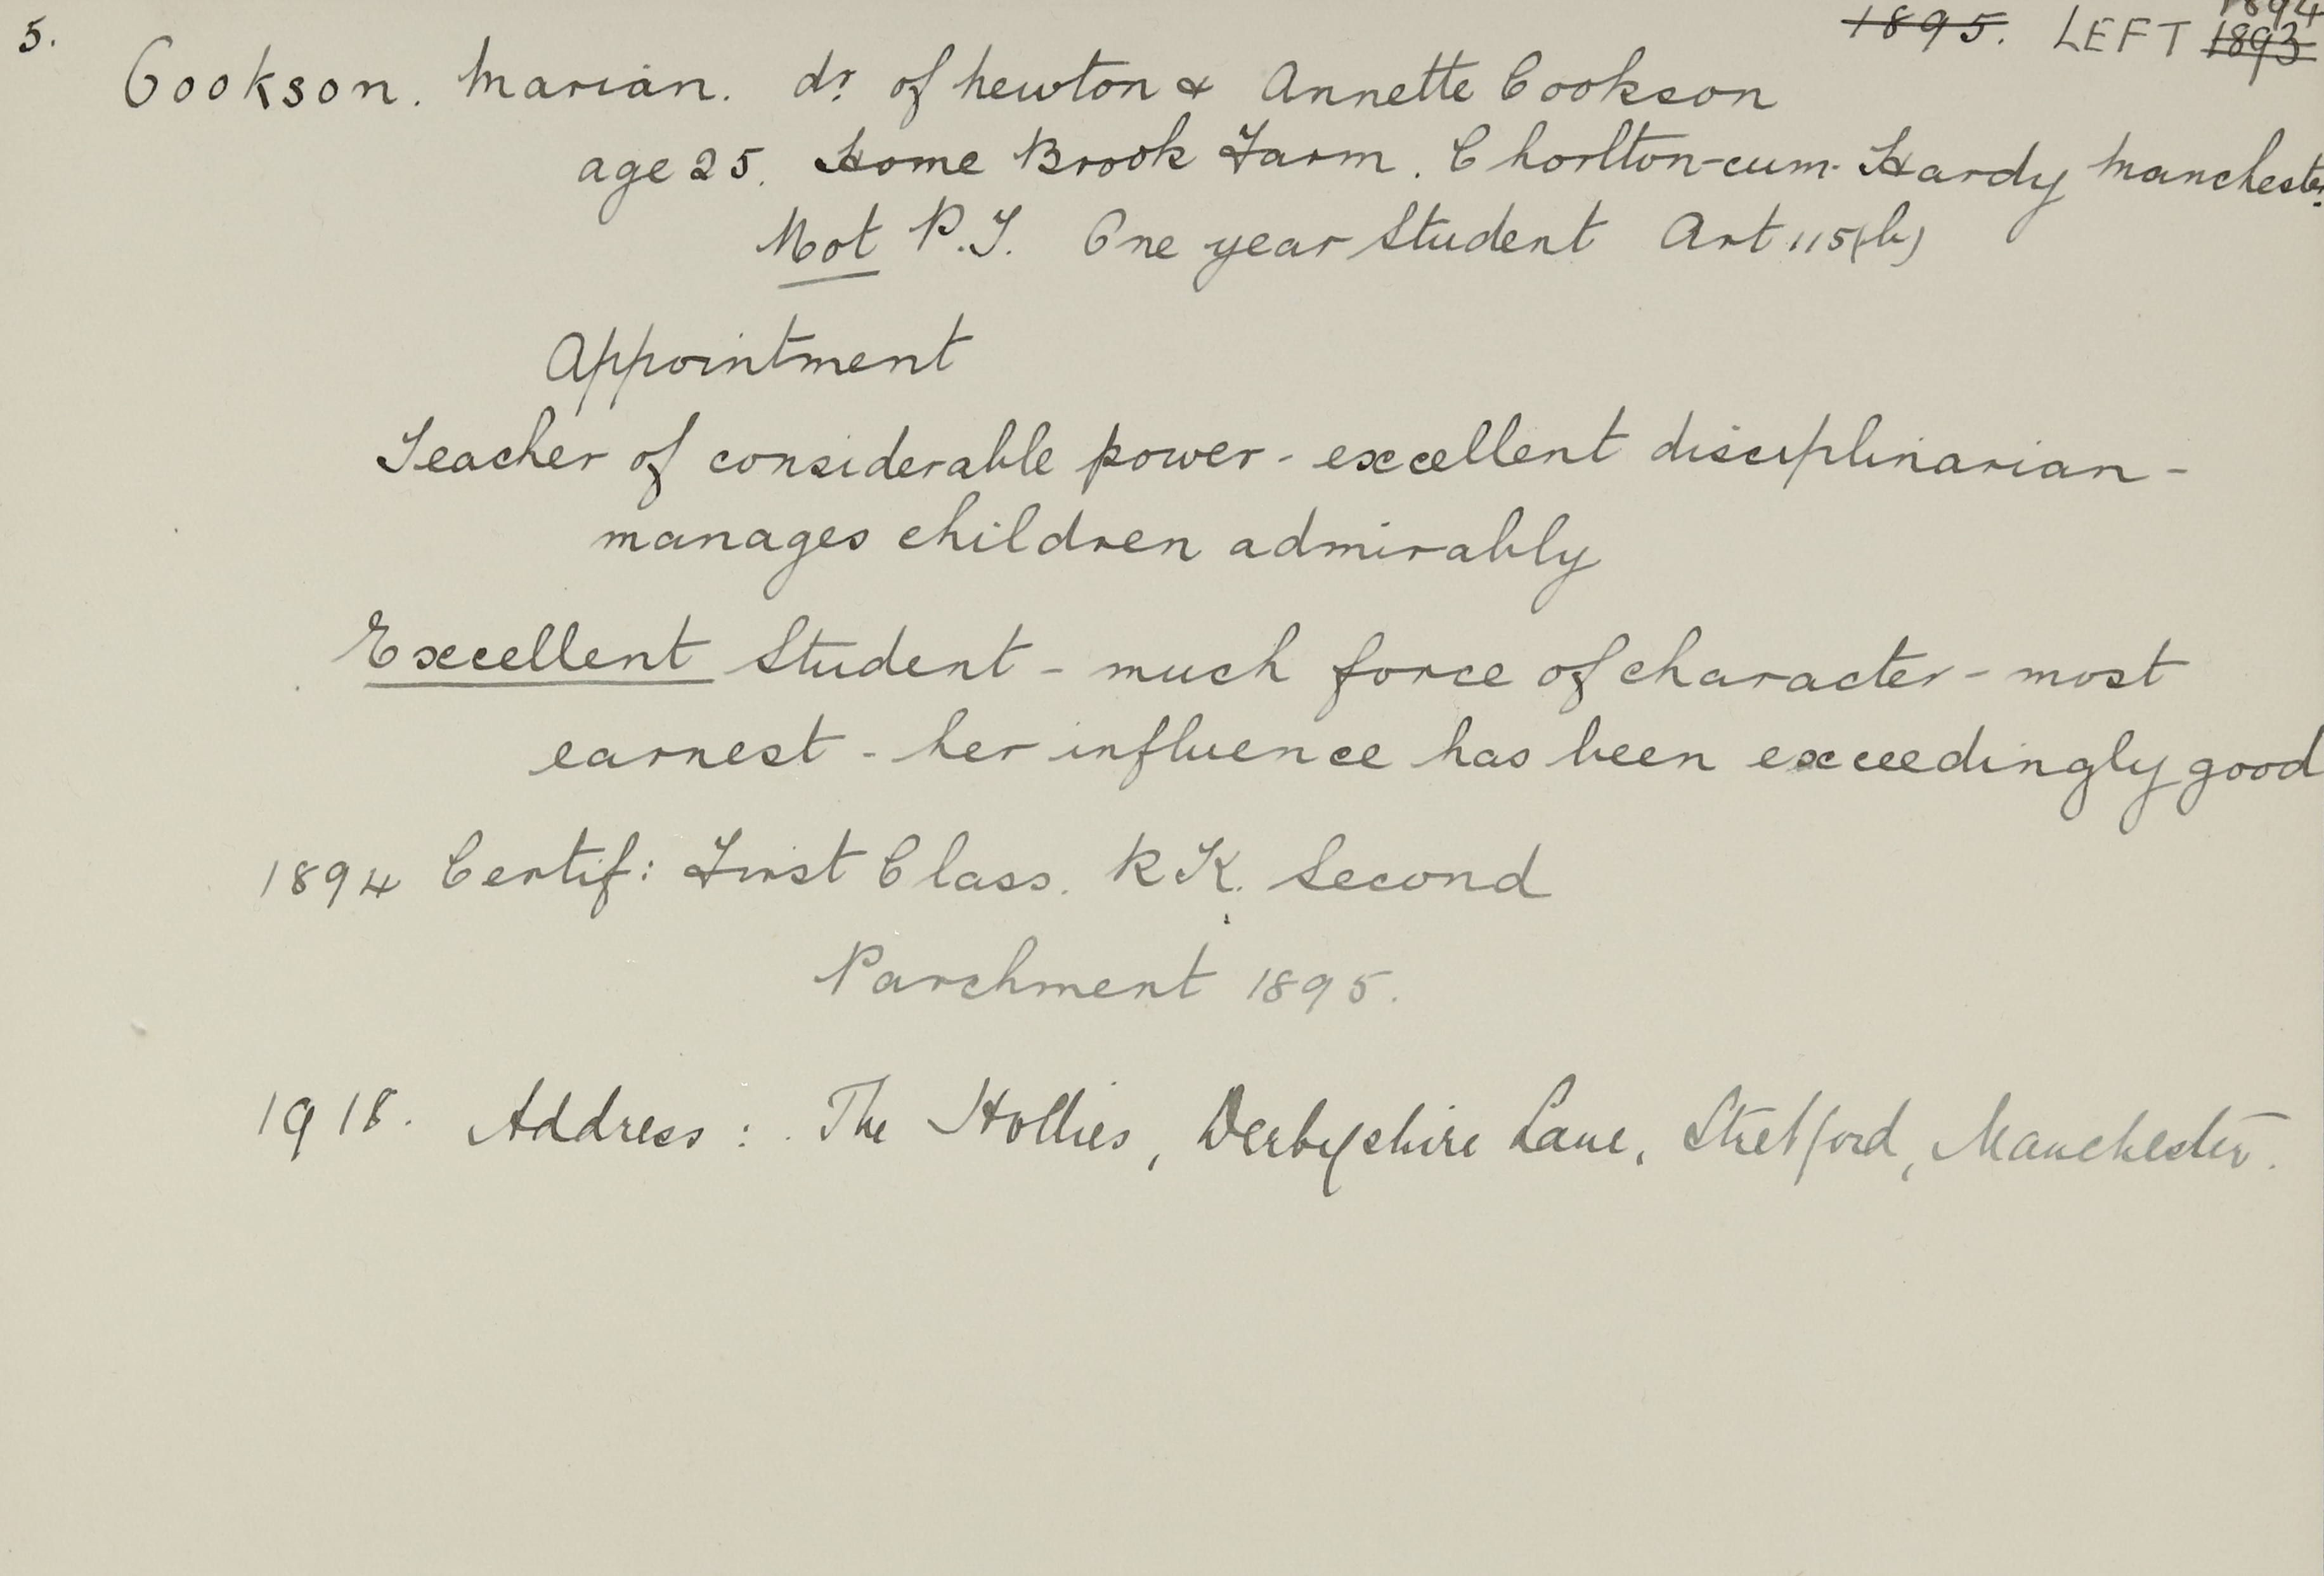 5.
1895. LEFT 1893 1894
Cookson. Marian. dr of Newton & Annette Cookson
age 25. Home Brook Farm. Chorlton-cum-Hardy Manchester.
Not P.T. One year Student Art 115(b)
Appointment
Teacher of considerable power - excellent disciplinarian -
manages children admirably
Excellent Student - much force of character - most
earnest - her influence has been exceedingly good
1894 Certif: First Class. R.K. Second
Parchment 1895.
1918. Address: The Hollies, Derbyshire Lane, Stretford, Manchester.